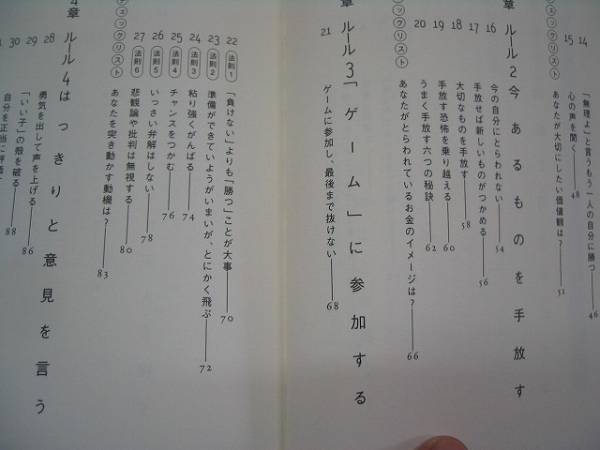 14 「無理よ」と言うもう一人の自分に勝つ 46
15 心の声を聞く 48
チェックリスト あなたが大切にしたい価値観は? 51
章 ルール2 今あるものを手放す
16 今の自分にとらわれない 54
17 手放せば新しいものがつかめる 56
18 大切なものを手放す 58
19 手放す恐怖を乗り越える 60
20 うまく手放す六つの秘訣 62
チェックリスト あなたがとらわれているお金のイメージは? 66
章 ルール3 「ゲーム」に参加する
21 ゲームに参加し、最後まで抜けない 68
22 法則1 「負けない」よりも「勝つ」ことが大事 70
23 法則2 準備ができていようがいまいが、とにかく飛ぶ 72
24 法則3 粘り強くがんばる 74
25 法則4 チャンスをつかむ 76
26 法則5 いっさい弁解はしない 78
27 法則6 悲観論や批判は無視する 80
チェックリスト あなたを突き動かす動機は? 83
4章 ルール4 はっきりと意見を言う
28 勇気を出して声を上げる 86
29 「いい子」の殻を破る 88
30 自分を正当に評価